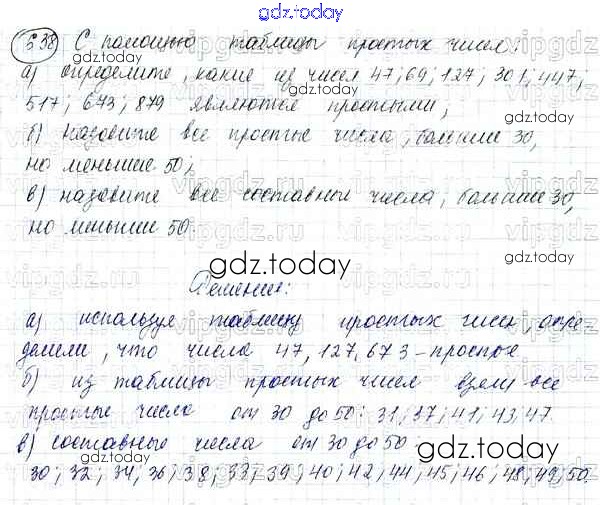 gdz.today
538 С помощью таблицы простых чисел:
а) определите, какие из чисел 47; 69; 127; 301; 447;
517; 673; 879 являются простыми;
б) назовите все простые числа, больше 30,
но меньшие 50;
в) назовите все составные числа, больше 30,
но меньшие 50
gdz.today
Решение:
а) используя таблицу простых чисел, опре
делили, что числа 47, 127, 673 - простые
б) из таблицы простых чисел взели все
простые числа от 30 до 50: 31; 37; 41; 43; 47.
в) составные числа от 30 до 50
gdz.today
30; 32; 34; 36; 38; 33; 39; 40; 42; 44; 45; 46; 48; 49; 50.
gdz.today